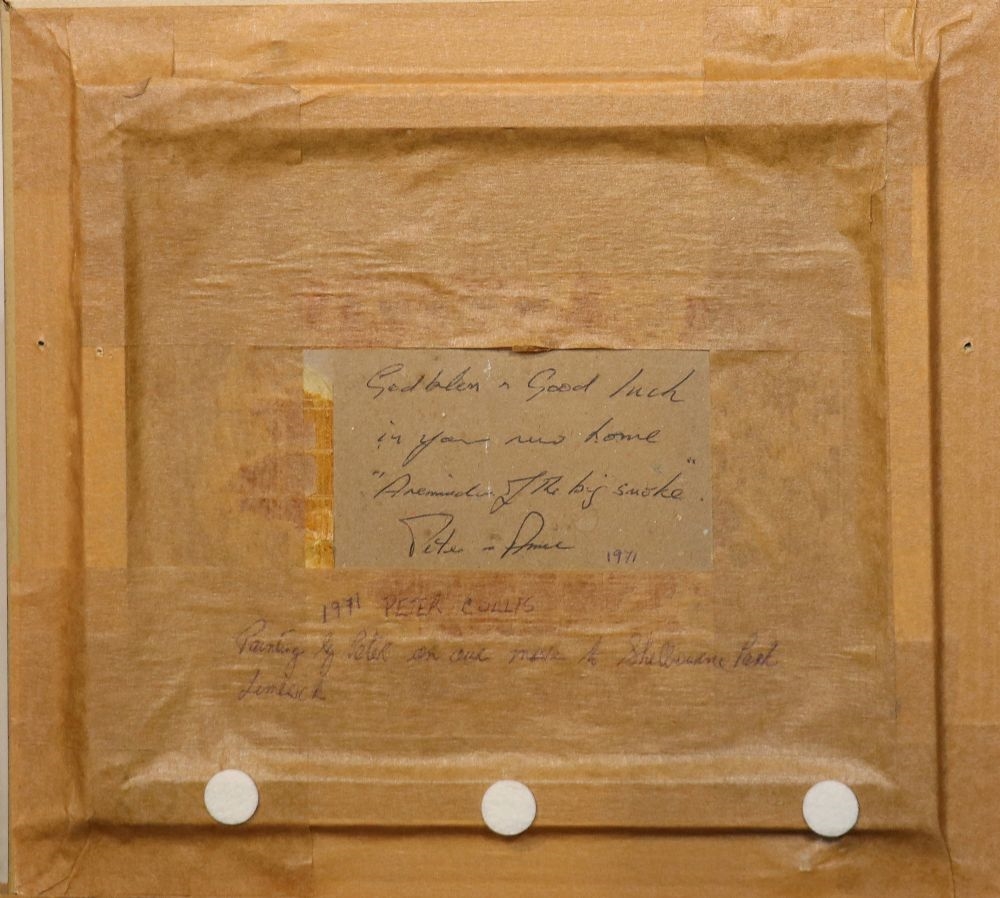 God bless & Good luck
in your new home
"A reminder of the big smoke".
Peter & Anne 1971
1971 PETER COLLIS
Painting by Peter on our move to Shelbourne Park
Limerick